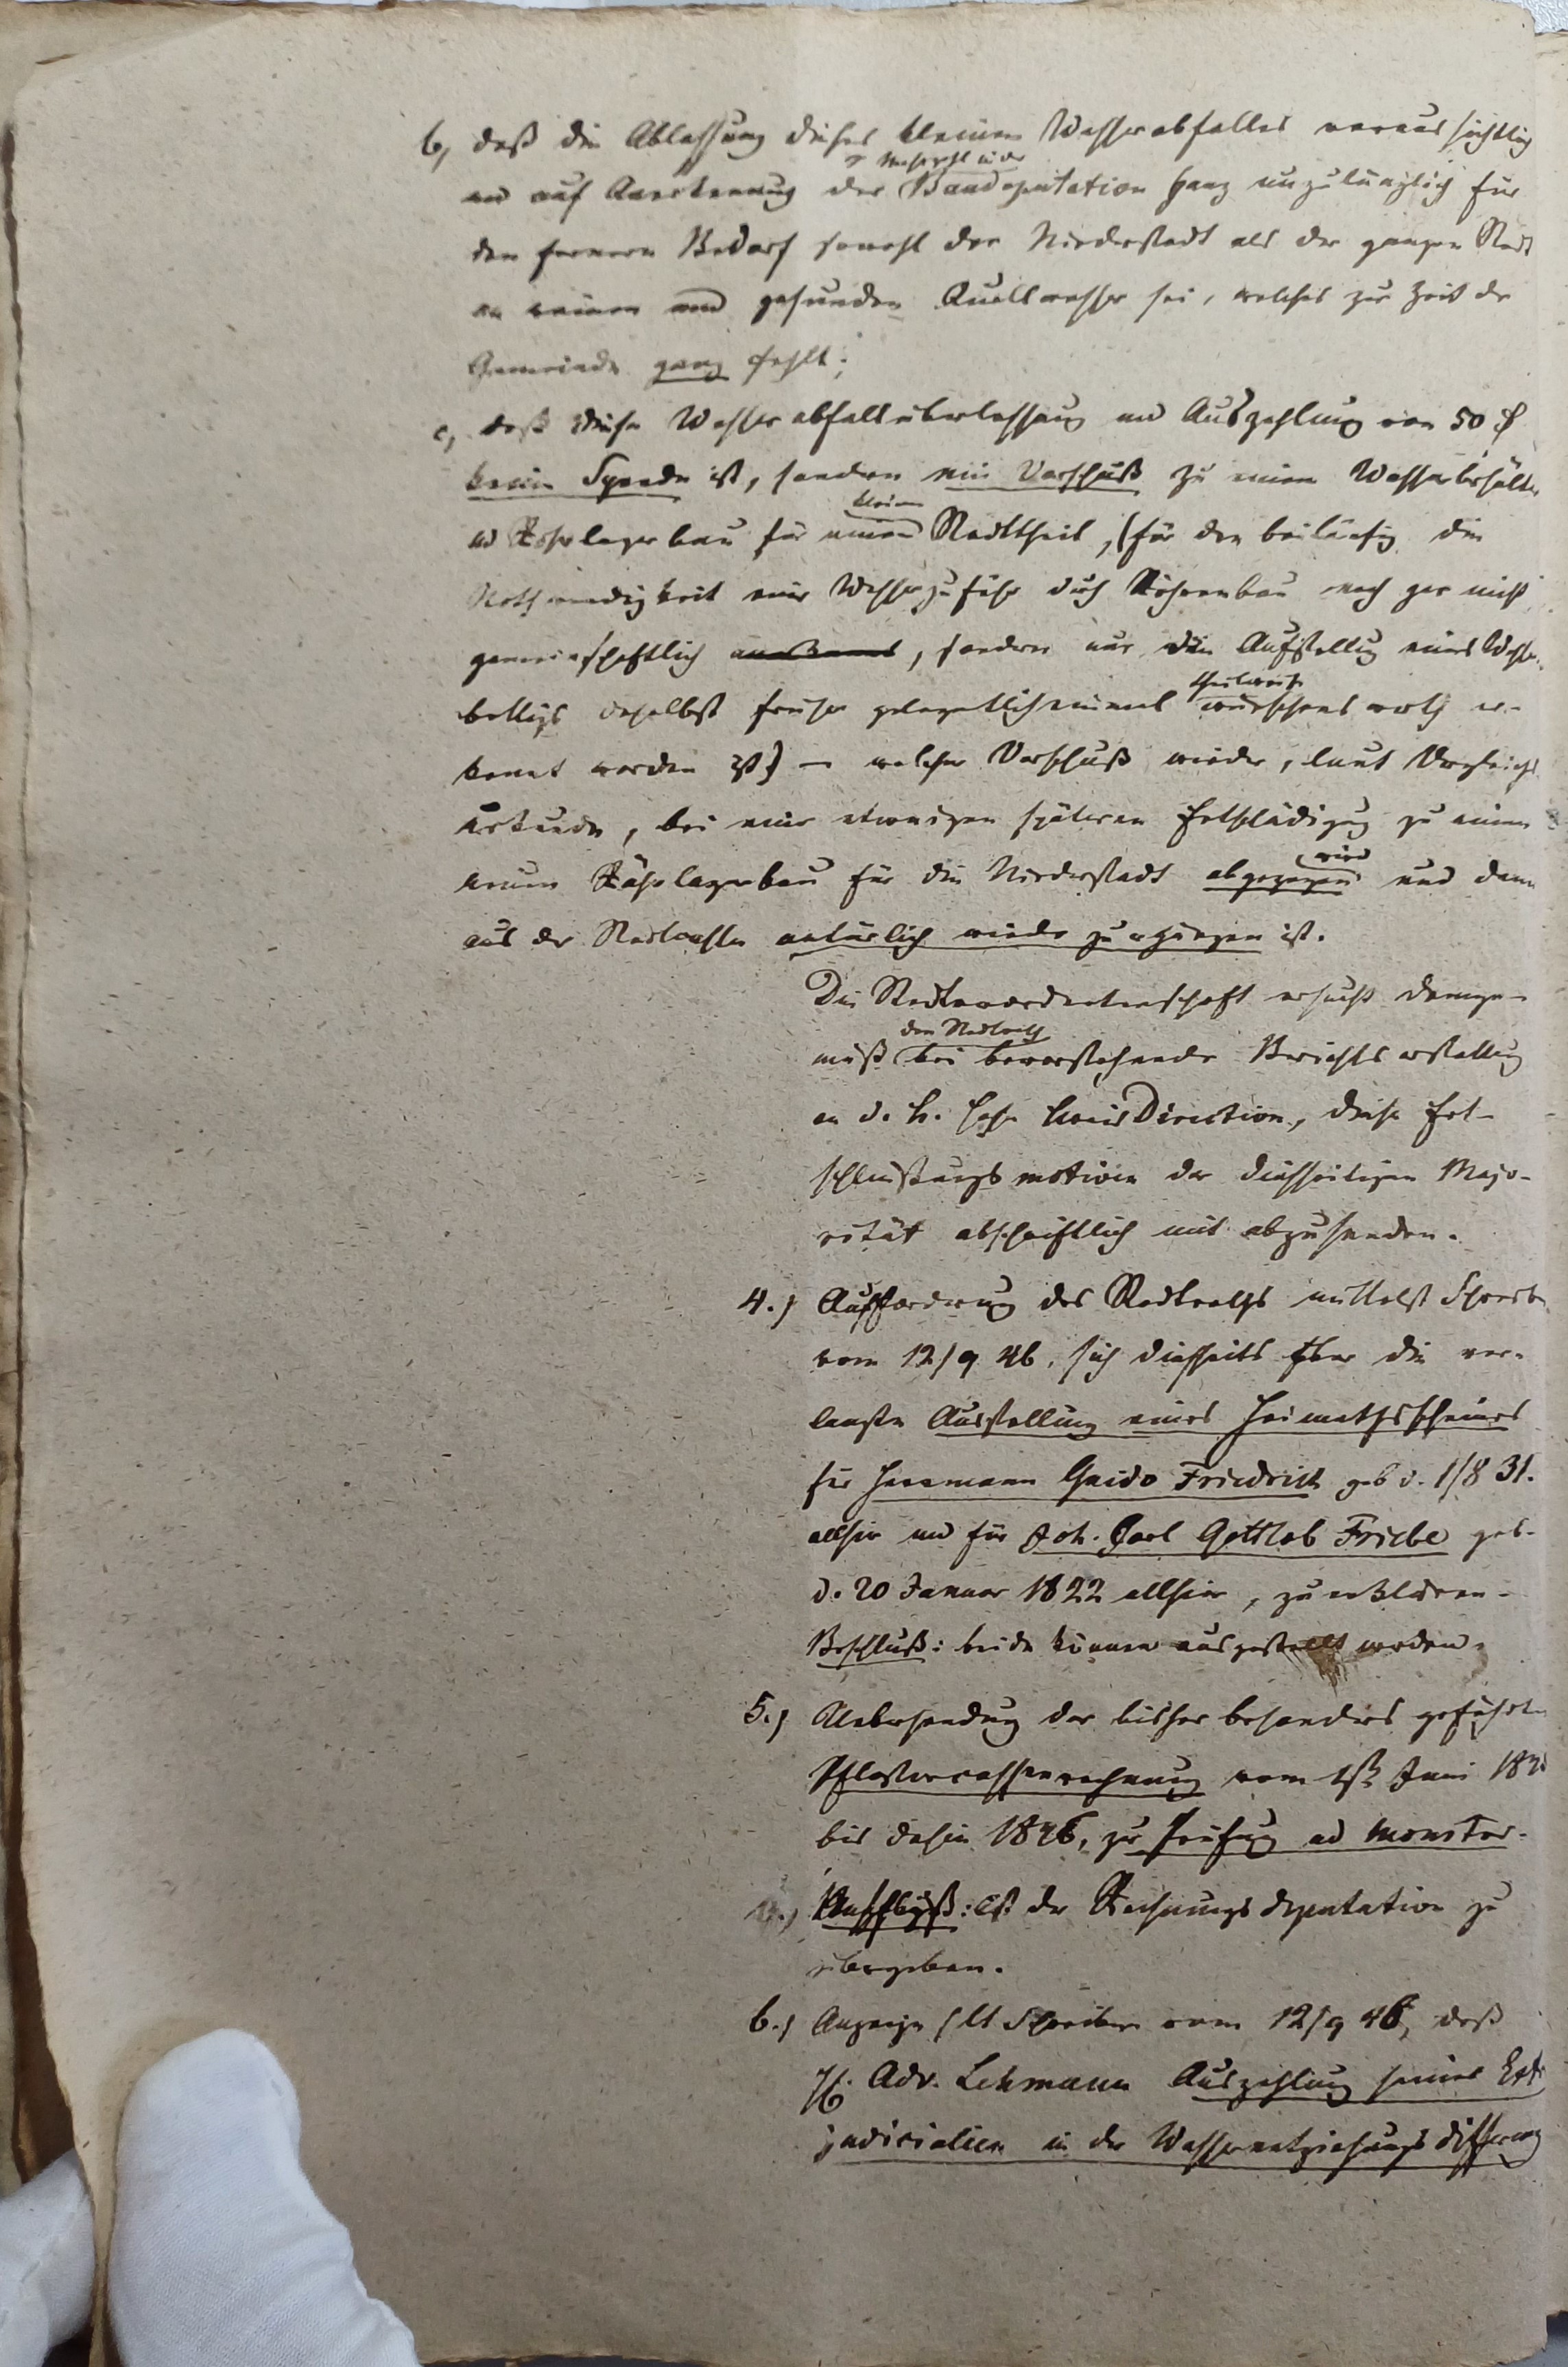 b, daß die Ablassung dieses kleinen Wasserabfalles voraussichtlich
und auf Anerkennung der Baudeputation ganz unzulänglich für
den fernern Bedarf sowohl der Niederstadt als der ganzen Stadt
an reinem und gesunden Quellwasser sei, welches zur Zeit der
Gemeinde ganz fehlt;
c, daß diese Wasserabfallüberlassung und Auszahlung von 50 
keine Spende ist, sondern ein Vorschuß zu einem Wasserbehälter
und Röhrlagerbau für einen kleinen Stadttheil, (für den beiläufig die
Nothwendigkeit einer Wasserzufuhr durch Röhrenbau noch gar nicht
gemeinschaftlich , sondern nur die Aufstellung eines Wasser-
bottigs daselbst früher gelegentlich einmal theilweise wünschenswerth er-
kannt worden ist) – welcher Vorschuß wieder, laut Vergleichs
urkunde, bei einer etwanigen späteren Entschädigung zu einem
neuen Röhrlagerbau für die Niederstadt abgezogen wird und dann
aus der Stadtcasse natürlich wieder zu ergänzen ist.
Die Stadtverordnetenschaft ersucht demge-
mäß den Stadtrath bei bevorstehender Berichtserstattung
an d. h. hohe KreisDirection, diese Ent-
schließungsmotiven der diesseitigen Majo-
rität abschriftlich mit abzusenden.
4.) Aufforderung des Stadtraths mittelst Schreiben
vom 12/9 46. sich diesseits über die ver-
langte Ausstellung eines Heimathsscheines
für Herrmann Guido Friedrich geb d. 1/8 31.
allhier und für Joh. Carl Gottlob Friebe geb.
d. 20 Januar 1822 allhier, zu erklären.
Beschluß: beide können ausgestellt werden.
5.) Uebersendung der bisher besonders geführten
Pflastercassenrechnung vom 1st Juni
bis dahin 1846, zur Prüfung ad monitor.
Beschluß: ist der Rechnungsdeputation zu
übergeben.
6.) Anzeige lt Schreiben vom 12/9 46, daß
H. Adv. Lehmann Auszahlung seines
judicialien in der Wasserentziehungsdifferenz